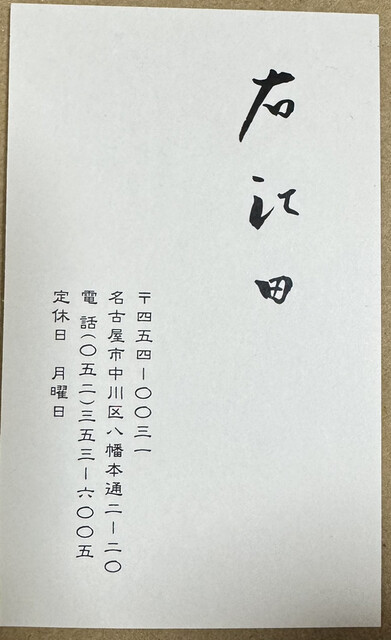 右江田
〒四五四ー〇〇三一
名古屋市中川区八幡本通二ー二〇
電話(〇五二)三五三ー六〇〇五
定休日　月曜日